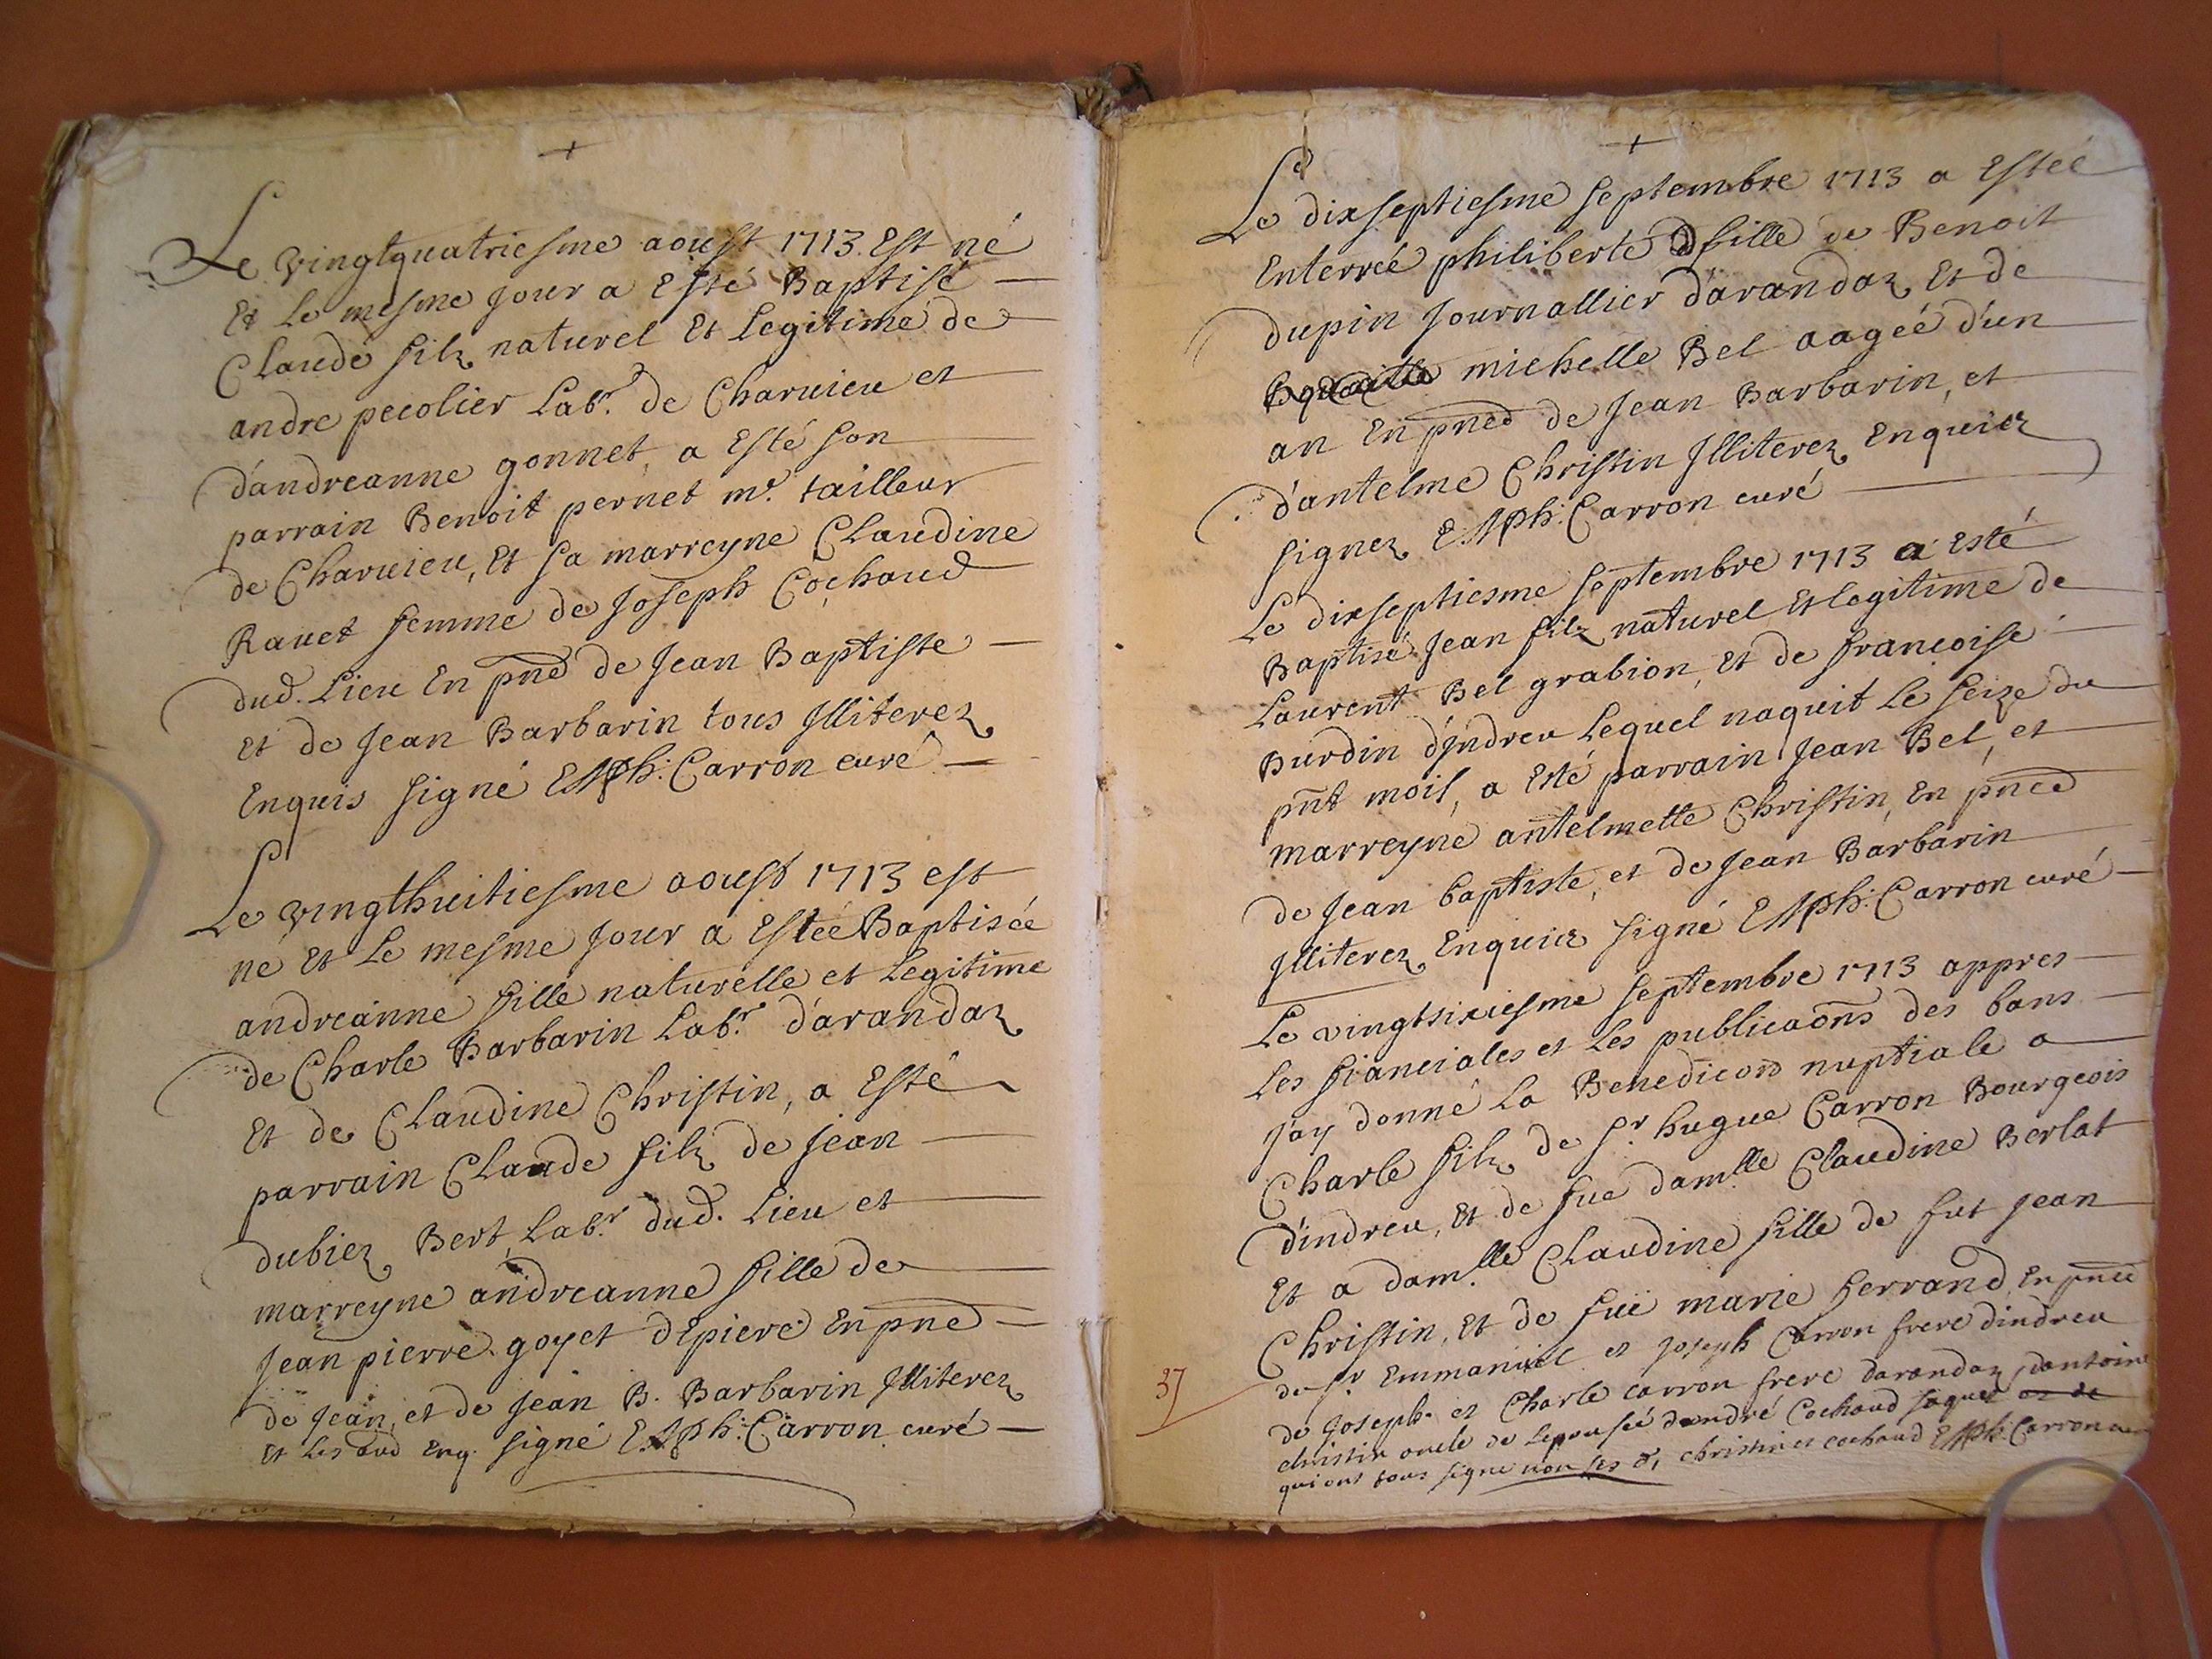 +
Le vingtquatriesme aoust 1713. Est né
Et Le mesme Jour a Esté Baptisé
Claude filz naturel Et Legitime de
andre pecolier Labr. de Charuieu et
d'andreanne gonnet, a Esté son
parrain Benoit pernet me. tailleur
de Charuieu, Et sa marreyne Claudine
Rauet femme de Joseph Cochaud
dud. Lieu En pnd de Jean Baptiste
et de Jean Barbarin tous Jlliterez
Enquis signé Carron curé
Le vingthuitiesme aoust 1713 est
né Et Le mesme Jour a Estée Baptisée
andreanne fille naturelle et Legitime
de Charle Barbarin Labr. d'arandaz
Et de Claudine Christin, a Esté
parrain Claude filz de Jean
dubiez Bert, Labr dud. Lieu et
marreyne andreanne fille de
Jean pierre goyet d'Epierre En pnd
de Jean, et de Jean B. Barbarin Jlliterez
et Les sud Enq. signé Carron curé
+
Le dixseptiesme septembre 1713 a Estée
Enterrée philiberte fille de Benoit
dupin Journallier d'arandaz Et de
michelle Bel aagée d'un
an En pned de Jean Barbarin, et
d'antelme Christin Jlliterez Enquiez
signez Carron curé
Le dixseptiesme septembre 1713 a Esté
Baptisé Jean filz naturel Et legitime de
Laurent Bel grabion, Et de francoise
Burdin d'Jndreu Lequel naquit Le seize du
pnt mois, a Esté parrain Jean Bel, et
marreyne antelmette Christin, En pned
de Jean baptiste, et de Jean Barbarin
Jlliterez Enquiez signé Carron curé
Le vingtsixiesme septembre 1713 appres
Les fianciales et Les publicaons des bans
J'ay donné La Benedicon nuptiale a
Charle filz de Sr. hugue Carron Bourgeois
d'indreu, Et de fue damlle Claudine Berlat
Et a damlle Claudine fille de fut Jean
Christin, Et de fuë marie ferrand, En pnce
de Sr Emmanuel et Joseph Carron frere dindreu
37
de Joseph et Charle carron frere darandaz, dantoine
christin oncle de Lepousée dandré Cochaud et de
qui ont tous signe non Les christin et cochaud Carron